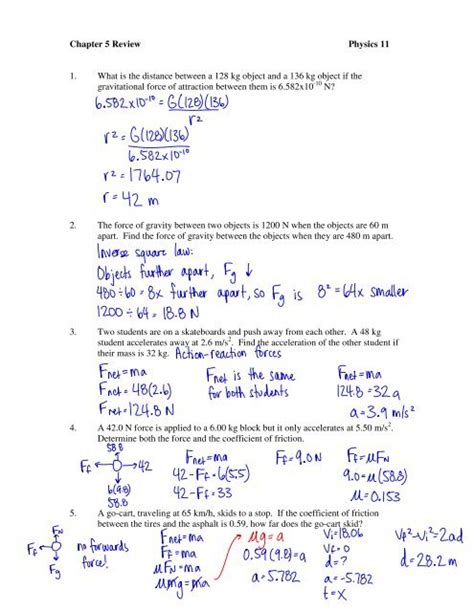 Chapter 5 Review Physics 11
1. What is the distance between a 128 kg object and a 136 kg object if the
gravitational force of attraction between them is 6.582x10⁻¹⁰ N?
6.582x10⁻¹⁰ = G(128)(136)
r²
r² = G(128)(136)
6.582x10⁻¹⁰
r² = 1764.07
r = 42 m
2. The force of gravity between two objects is 1200 N when the objects are 60 m
apart. Find the force of gravity between the objects when they are 480 m apart.
Inverse square law:
Objects further apart, Fg ↓
480 ÷ 60 = 8x further apart, so Fg is 8² = 64x smaller
1200 ÷ 64 = 18.8 N
3. Two students are on a skateboards and push away from each other. A 48 kg
student accelerates away at 2.6 m/s². Find the acceleration of the other student if
their mass is 32 kg. Action-reaction forces
Fnet = ma Fnet is the same Fnet = ma
Fnet = 48(2.6) for both students 124.8 = 32a
Fnet = 124.8 N a = 3.9 m/s²
4. A 42.0 N force is applied to a 6.00 kg block but it only accelerates at 5.50 m/s².
Determine both the force and the coefficient of friction.
58.8
Ff 42 Fnet = ma Ff = 9.0 N Ff = μFN
6(9.8) 42 - Ff = 6(5.5) 9.0 = μ(58.8)
58.8 42 - Ff = 33 μ = 0.153
5. A go-cart, traveling at 65 km/h, skids to a stop. If the coefficient of friction
between the tires and the asphalt is 0.59, how far does the go-cart skid?
FN Fnet = ma μg = a Vi = 18.06 Vf² - Vi² = 2ad
Ff no forwards Ff = ma 0.59(9.8) = a Vf = 0 d = 28.2 m
force! μFN = ma a = 5.782 d = ?
Fg μmg = ma a = -5.782
t = x